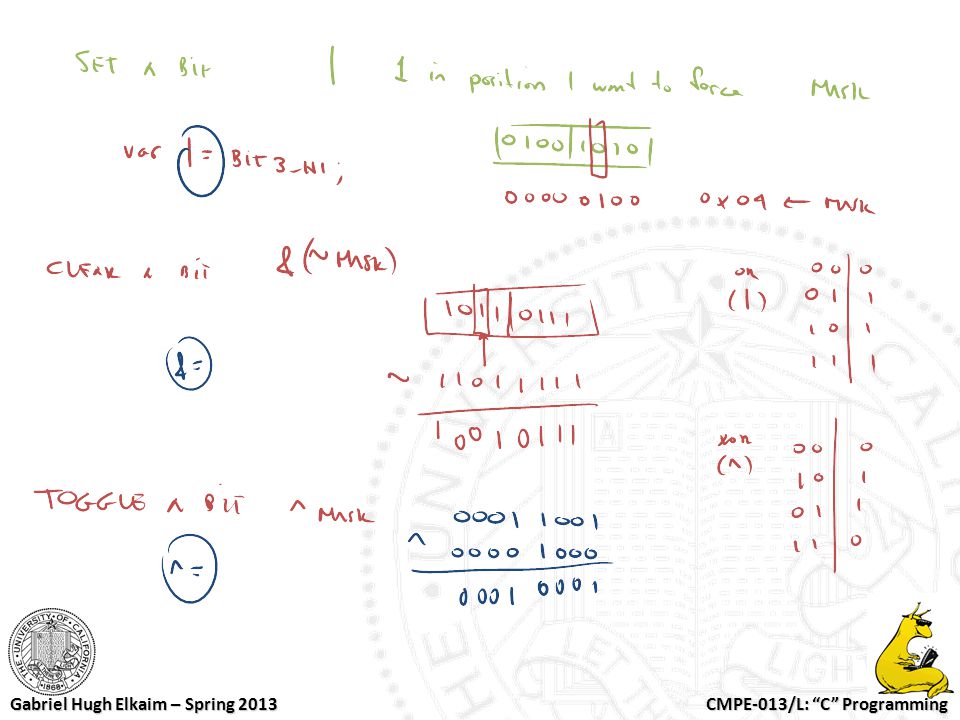 SET A BIT | 1 in position I want to force MASK
var |= BIT3_HI;
0100|1010|
0000 0100 0x04 ← MASK
CLEAR A BIT & (~MASK)
or (|)
0 0 | 0
0 1 | 1
1 0 | 1
1 1 | 1
1011|0111
&=
~ 11011111
10010111
xor (^)
0 0 | 0
1 0 | 1
0 1 | 1
1 1 | 0
TOGGLE A BIT ^ MASK
0001 1001
^ 0000 1000
^=
0001 0001
THE UNIVERSITY OF CALIFORNIA
1868
LET
LIGHT
Gabriel Hugh Elkaim – Spring 2013
CMPE-013/L: “C” Programming